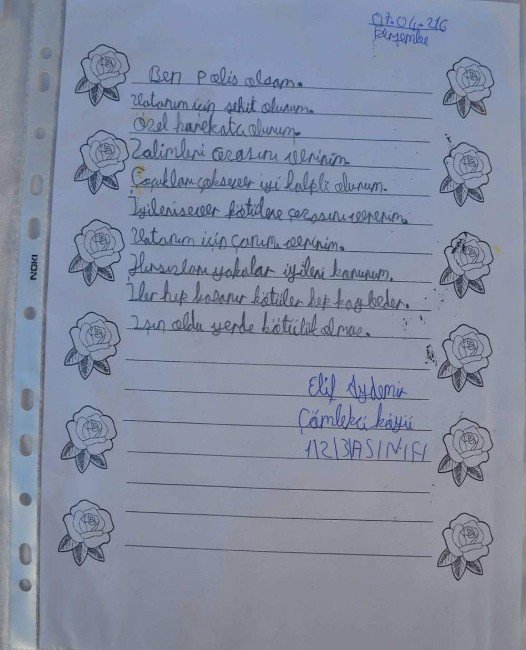 07.04.216
Perşembe
Ben Polis olsam.
Vatanım için şehit olurum.
Özel harekatcı olurum.
Zalimleri cezasını veririm.
Çoçukları çoksever iyi kalpli olurum.
İyileri sever kötülere cezasını veririm.
Vatanım için canım veririm.
Hırsızları yakalar iyileri korurum.
İler hep kazanır kötüler hep kaybeder.
Işın oldu yerde kötülük olmaz.
Elif Aydemir
Çömlekci köyü
1/2/3/A SINIFI
NOKI